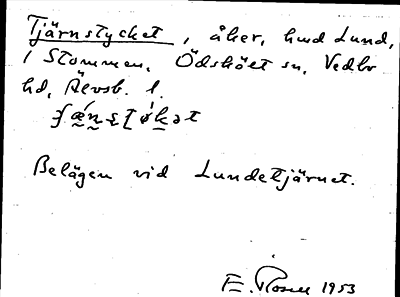 Tjärnstycket, åker, hmd Lund,
1 Stommen, Ödskölt sn, Vedbo
hd, Älvsb. l.
Belägen vid Lundetjärnet.
E. Rosell 1953